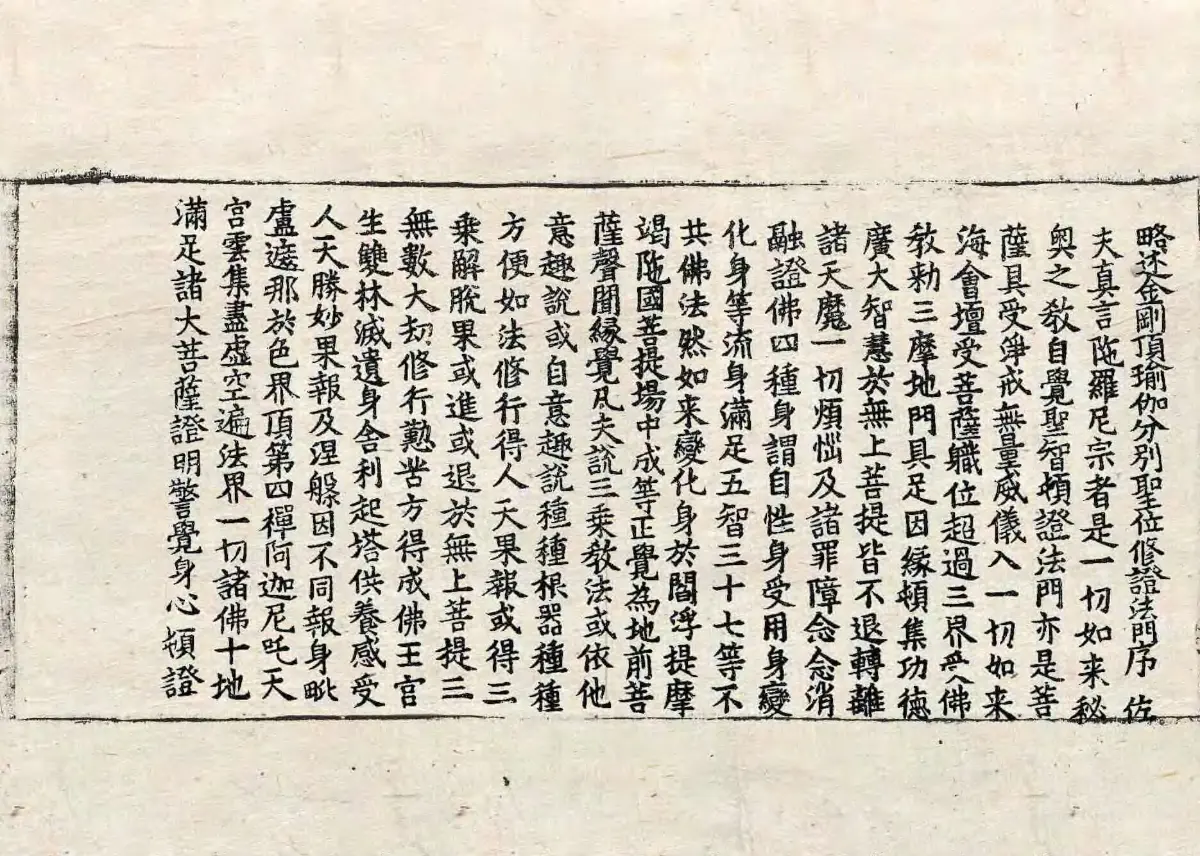 略述金剛頂瑜伽分別聖位修證法門序 佐
夫真言陁羅尼宗者是一切如来秘
奥之教自覺聖智頓證法門亦是菩
薩具受淨戒無量威儀入一切如来
海會壇受菩薩職位超過三界受佛
教勅三摩地門具足因緣頓集功德
廣大智慧於無上菩提皆不退轉離
諸天魔一切煩惱及諸罪障念念消
融證佛四種身謂自性身受用身變
化身等流身滿足五智三十七等不
共佛法然如来變化身於閻浮提摩
竭陁國菩提場中成等正覺為地前菩
薩聲聞緣覺凡夫說三乘教法或依他
意趣說或自意趣說種種根器種種
方便如法修行得人天果報或得三
乘解脫果或進或退於無上菩提三
無數大劫修行勤苦方得成佛王宮
生雙林滅遺身舍利起塔供養感受
人天勝妙果報及涅槃因不同報身毗
盧遮那於色界頂第四禪阿迦尼吒天
宮雲集盡虛空遍法界一切諸佛十地
滿足諸大菩薩證明警覺身心頓證